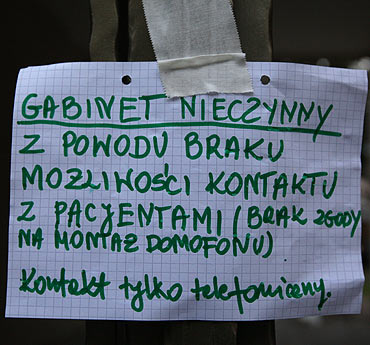 GABINET NIECZYNNY
Z POWODU BRAKU
MOŻLIWOŚCI KONTAKTU
Z PACJENTAMI (BRAK ZGODY
NA MONTAŻ DOMOFONU)
Kontakt tylko telefoniczny.